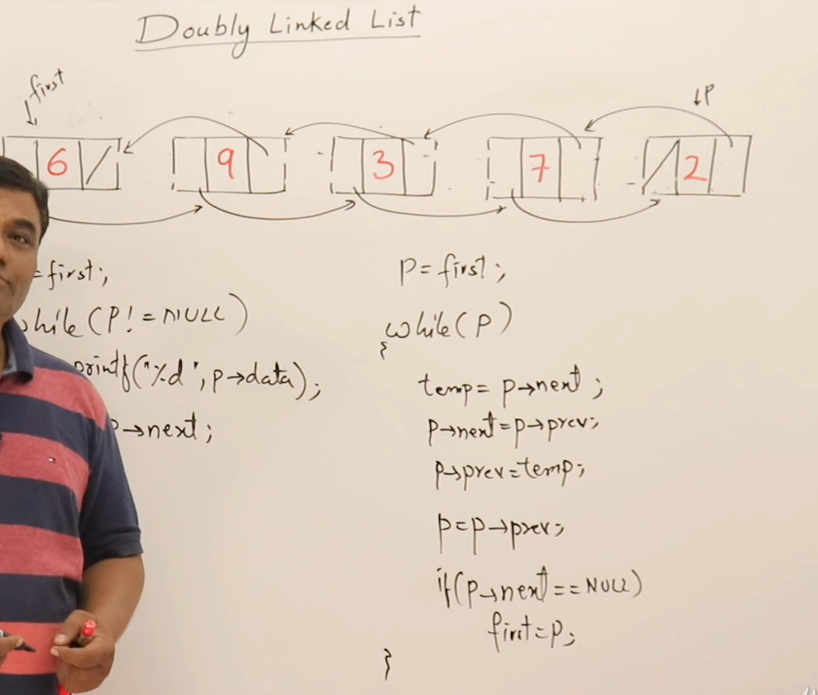 Doubly Linked List
first
P
6 9 3 7 2
=first;
while(P!=NULL)
printf("%d",p→data);
p→next;
P=first;
while(P)
{
temp=p→next;
p→next=p→prev;
p→prev=temp;
p=p→prev;
if(p→next==NULL)
first=p;
}